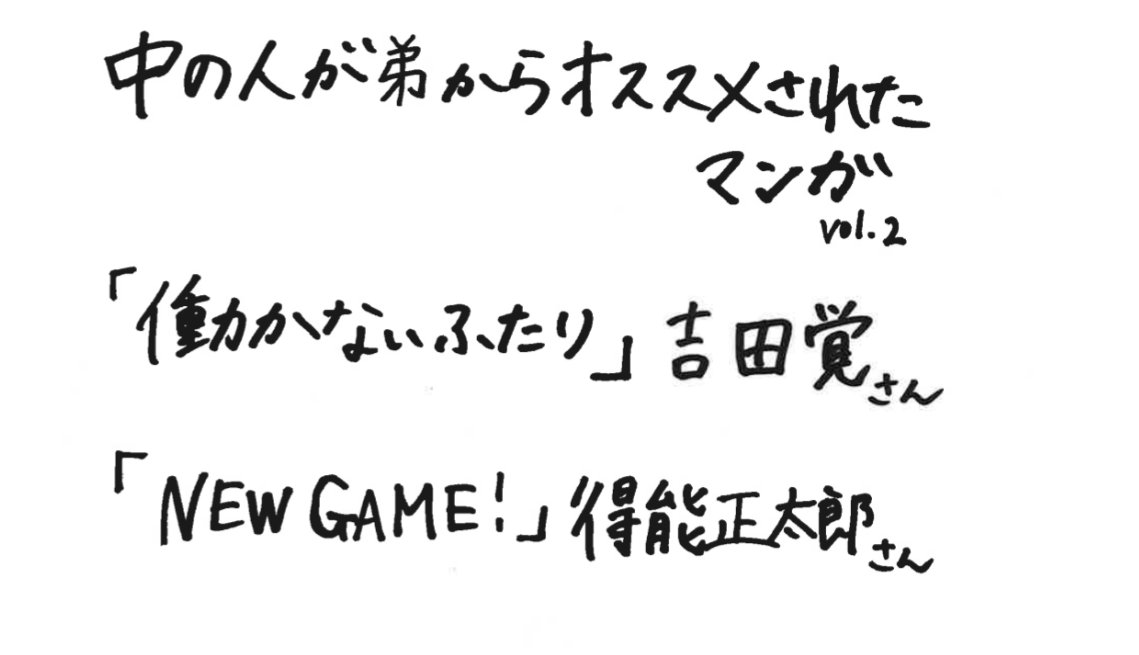 中の人が弟からオススメされた
マンガ
vol.2
「働かないふたり」吉田覚さん
「NEW GAME!」得能正太郎さん